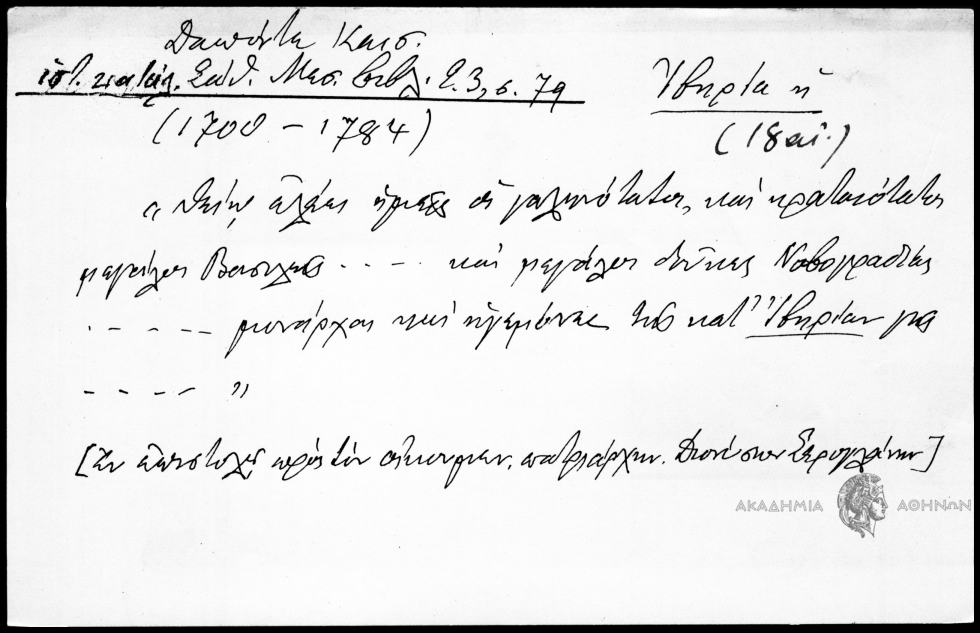 Δαπόντε Καισ. Ἰβηρία ἡ
ἱστ. καταλ. Σάθ. Μεσ. βιβλ. Σ. 3, σ. 79
(1700 – 1784) (18 αἰ.)
„ θείῳ ἐλέει ἡμεῖς οἱ γαληνότατοι, καὶ κραταιότατοι
μεγάλοι Βασιλεῖς . . - . καὶ μεγάλοι δοῦκες Νοβογραδίας
. - - - - μονάρχαι καὶ ἡγεμόνες τῆς κατ' Ἰβηρίαν γῆς
- - - - "
[Ἐν ἐπιστολῇ πρὸς τὸν οἰκουμεν. πατριάρχην. Διονύσιον Σερογλάνην]
ΑΚΑΔΗΜΙΑ ΑΘΗΝΩΝ